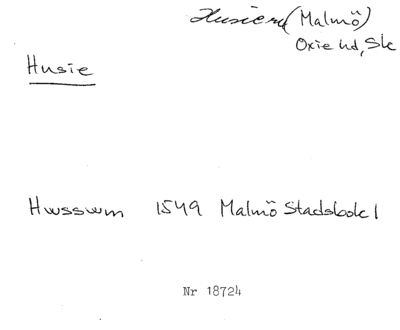 Husie sn (Malmö)
Oxie hd, Sk
Husie
Hwsswm 1549 Malmö Stadsbok I
Nr 18724